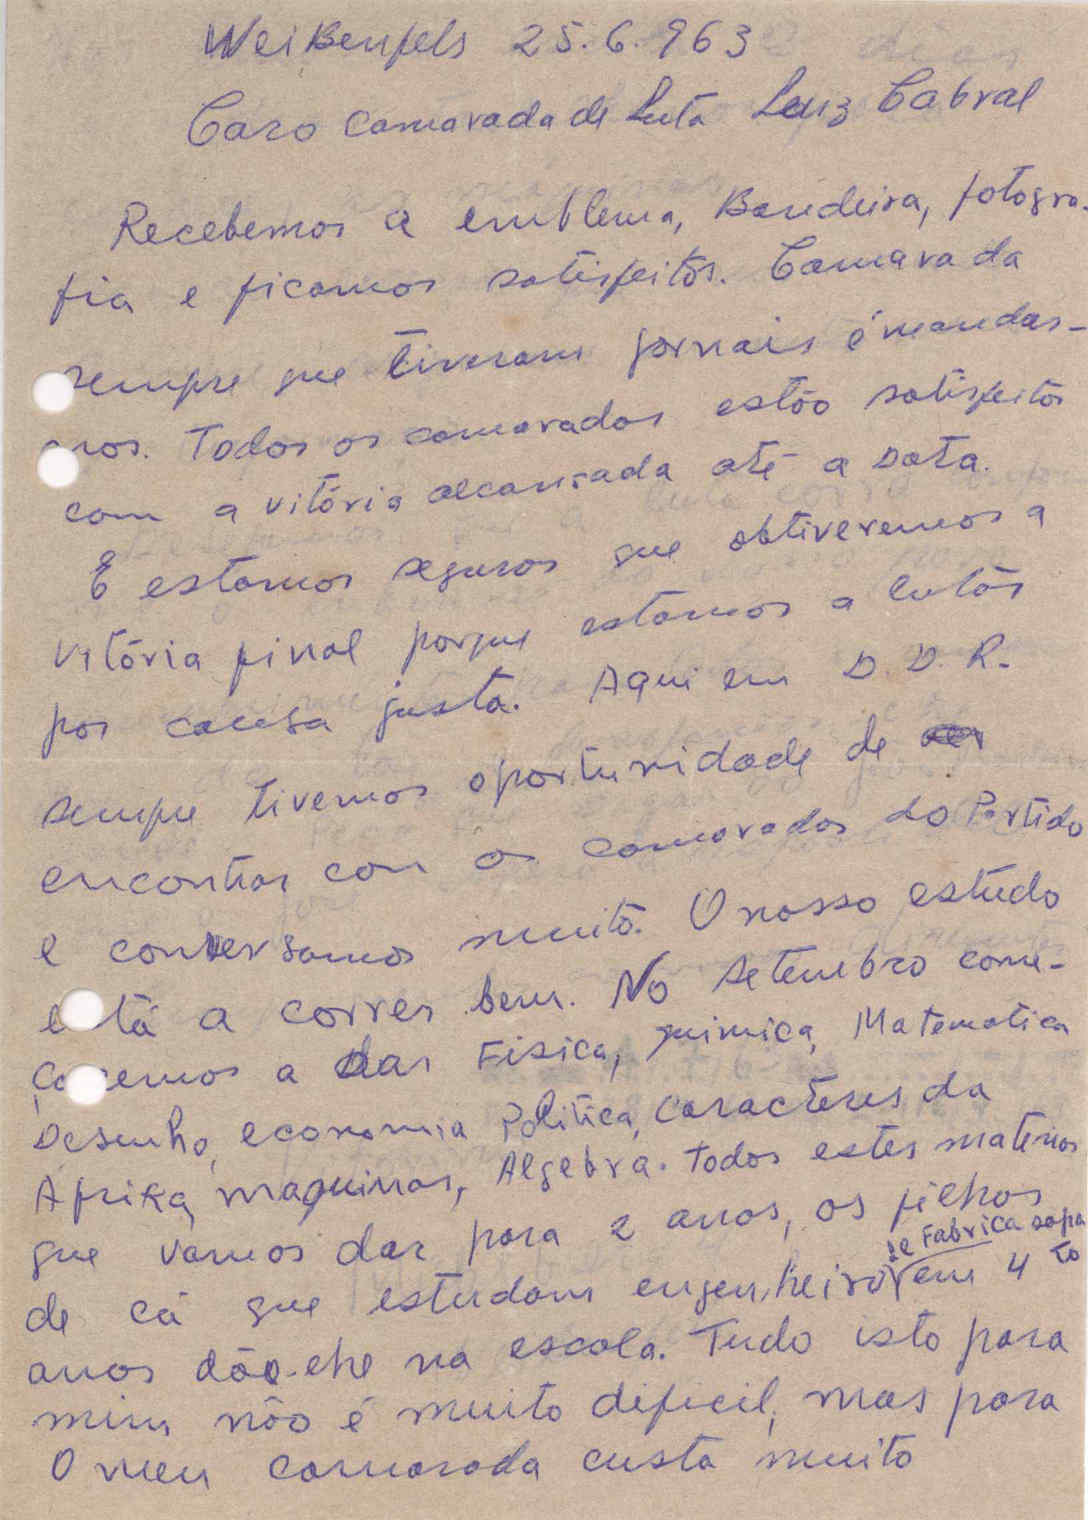 Weißenfels 25.6.963
Caro camarada de Luta Luiz Cabral
Recebemos a emblema, Bandeira, fotogra-
fia e ficamos satisfeitos. Camarada
sempre que tiveram jornais é mandar-
nos. Todos os camarados estão satisfeitos
com a vitória alcansada até a Data.
E estamos seguros que obtiveremos a
vitória final porque estamos a lutar
por causa justa. Aqui em D.D.R.
sempre tivemos oportunidade de
encontrar con os camarados do Partido
e conversamos muito. O nosso estudo
está a correr bem. No setembro come-
çaremos a dar Fisica, quimica, Matematica
Desenho, economia Politica, caracteres da
Afrika, maquinas, Algebra. Todos estes materias
que vamos dar para 2 anos, os filhos
de cá que estudam engenheiro de Fabrica sapato em 4
anos dão-lhe na escola. Tudo isto para
mim não é muito dificil, mas para
O meu camarada custa muito